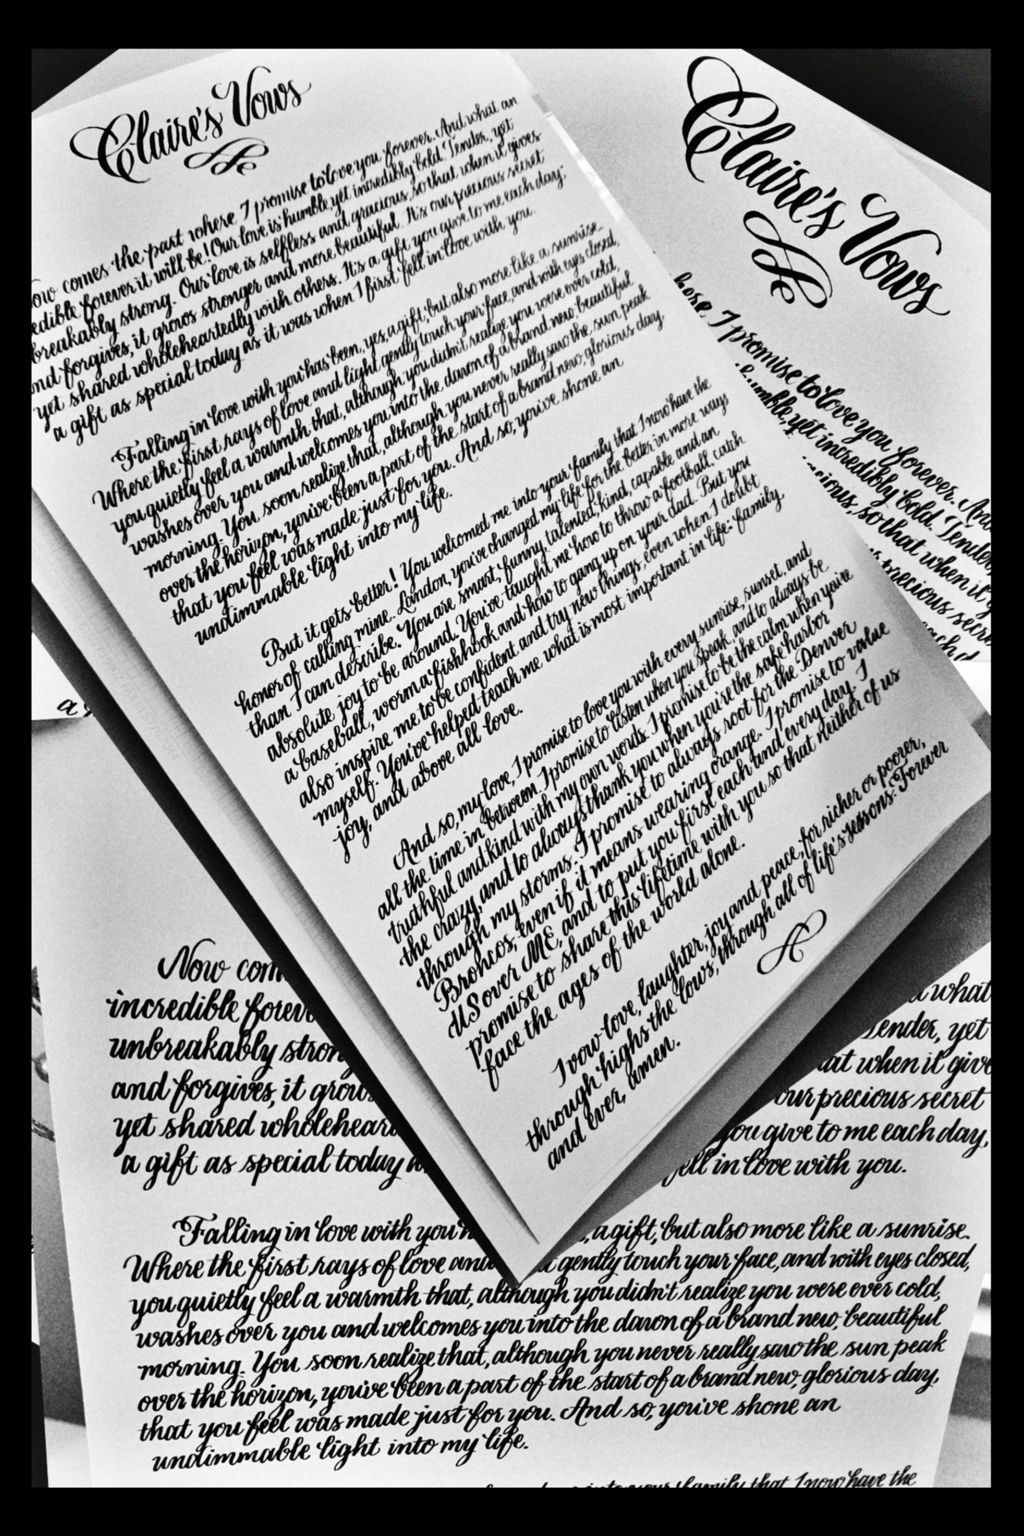 Claire's Vows
Now comes the part where I promise to love you forever. And what an
edible forever it will be! Our love is humble, yet incredibly bold. Tender, yet
breakably strong. Our love is selfless and gracious, so that when it gives
and forgives, it grows stronger and more beautiful. It's our precious secret
yet shared wholeheartedly with others. It's a gift you give to me each day;
a gift as special today as it was when I first fell in love with you.
Falling in love with you has been, yes, a gift, but also more like a sunrise.
Where the first rays of love and light gently touch your face, and with eyes closed,
you quietly feel a warmth that, although you didn't realize you were ever cold,
washes over you and welcomes you into the dawn of a brand new, beautiful
morning. You soon realize that, although you never really saw the sun peak
over the horizon, you've been a part of the start of a brand new, glorious day,
that you feel was made just for you. And so, you've shone an
undimmable light into my life.
But it gets better! You welcomed me into your family that I now have the
honor of calling mine. Landon, you've changed my life for the better in more ways
than I can describe. You are smart, funny, talented, kind, capable and an
absolute joy to be around. You've taught me how to throw a football, catch
a baseball, worm a fishhook and how to gang up on your dad. But you
also inspire me to be confident and try new things, even when I doubt
myself. You've helped teach me what is most important in life - family,
joy, and above all love.
And so, my love, I promise to love you with every sunrise, sunset, and
all the time in between. I promise to listen when you speak, and to always be
truthful and kind with my own words. I promise to be the calm when you're
the crazy, and to always thank you when you're the safe harbor
through my storms. I promise to always root for the Denver
Broncos, even if it means wearing orange. I promise to value
US over ME, and to put you first each and every day. I
promise to share this lifetime with you so that neither of us
face the ages of the world alone.
I vow love, laughter, joy and peace, for richer or poorer,
through highs the lows, through all of life's seasons. Forever
and ever, amen.
Claire's Vows
here I promise to love you forever. And
humble, yet incredibly bold. Tender,
so that when it g
precious secre
each d
a g
Now com
incredible forev
unbreakably stron
and forgives, it grow
yet shared wholehear
a gift as special today a
d what
Tender, yet
at when it give
our precious secret
you give to me each day,
fell in love with you.
Falling in love with you h , a gift, but also more like a sunrise.
Where the first rays of love and gently touch your face, and with eyes closed,
you quietly feel a warmth that, although you didn't realize you were ever cold,
washes over you and welcomes you into the dawn of a brand new, beautiful
morning. You soon realize that, although you never really saw the sun peak
over the horizon, you've been a part of the start of a brand new, glorious day,
that you feel was made just for you. And so, you've shone an
undimmable light into my life.
into your family that I now have the